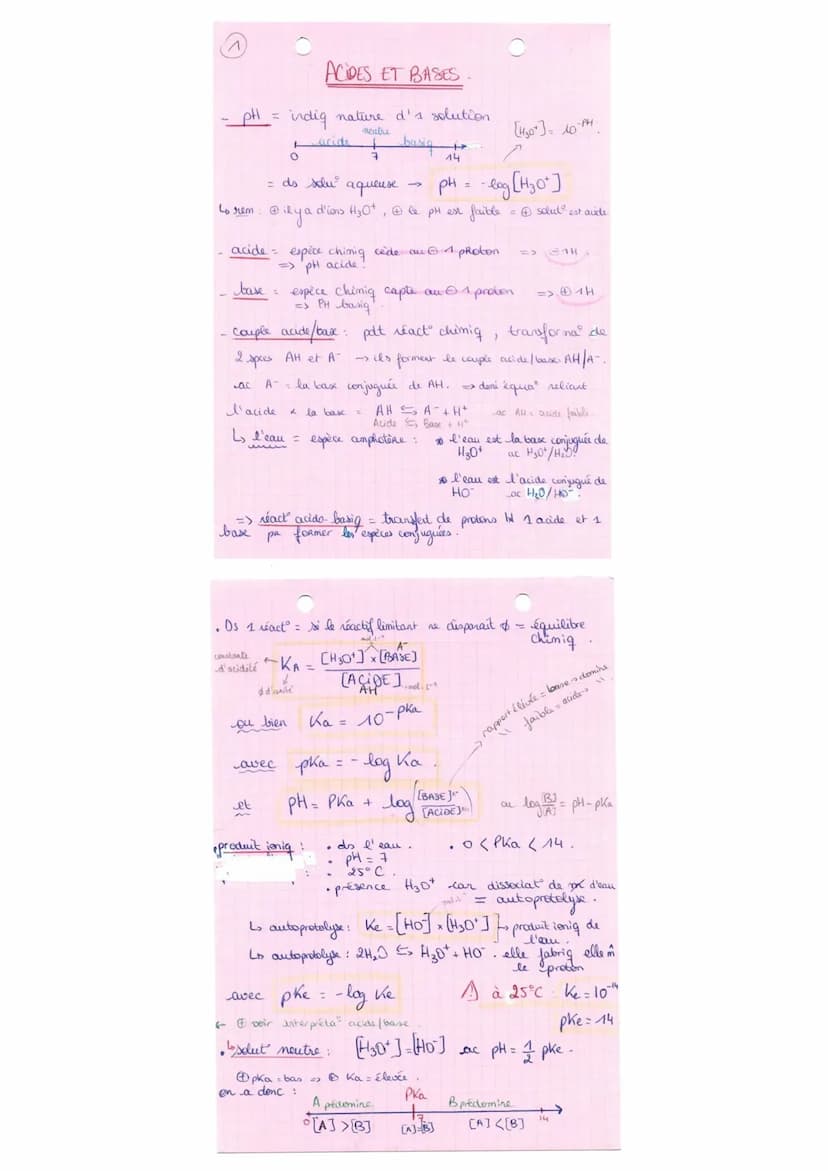 1
ACIDES ET BASES.
- pH = indiq nature d'1 solution
[H3O+] = 10^-PH.
acide neutre basiq
0 7 14
= ds solu° aqueuse → pH = -log[H3O+]
↳ rem : ⊕ il y a d'ions H3O+, ⊕ le pH est faible = ⊕ solut° est acide
- acide = espèce chimiq cède au ⊖ 1 proton => ⊖ 1H
=> pH acide.
- base = espèce chimiq capte au ⊖ 1 proton => ⊕ 1H
=> PH basiq
- couple acide/base : pdt réact° chimiq, transforma° de
2 spces AH et A- → ils forment le couple acide/base AH/A-.
ac A- = la base conjuguée de AH. => demi équa° reliant
l'acide & la base = AH ⇆ A- + H+ ac AH = acide faible
Acide ⇆ Base + H+
↳ l'eau = espèce amphotère : * l'eau est la base conjuguée de
H3O+ ac H3O+/H2O.
* l'eau est l'acide conjugué de
HO- ac H2O/HO-.
=> réact° acido-basiq = transfert de protons b/w 1 acide et 1
base pr former les espèces conjuguées.
. Ds 1 réact° = si le réactif limitant ne disparait ϕ = équilibre
chimiq.
constante d'acidité ← KA = [H3O+] x [BASE] / [ACIDE]
A-
AH
mol.L-1
ou bien Ka = 10^-pKa
avec pKa = -log Ka.
rapport élevée = base → domine
" faible = acide → "
et pH = PKa + log([BASE] / [ACIDE]) ou log [B]/[A] = pH - pKa
. produit ioniq : . ds l'eau. . 0 < PKa < 14.
. pH = 7
. 25°C.
. présence H3O+ car dissociat° de d'eau
= autoprotolyse.
↳ autoprotolyse : Ke = [HO-] x [H3O+] → produit ioniq de
l'eau.
↳ autoprotolyse : 2H2O ⇆ H3O+ + HO-. elle fabriq elle m̂
le proton
avec pKe = -log Ke ⚠ à 25°C : Ke = 10^-14
pKe = 14
← ⊕ voir interpréta° acide/base.
. ↳ solut° neutre : [H3O+] = [HO-] ac pH = 1/2 pKe.
⊕ pKa = bas => ⊕ Ka = élevée.
on a donc :
A prédomine PKa B prédomine
0 7 14
[A] > [B] [A] = [B] [A] < [B]